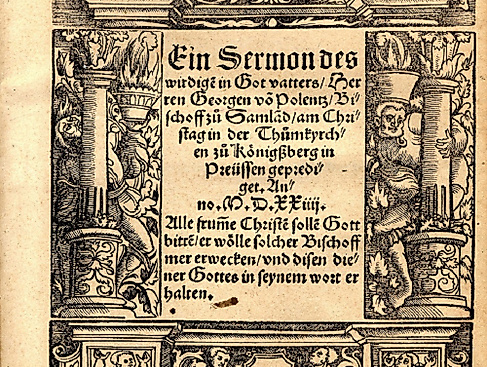 Ein Sermon des
wirdigē in Got vatters/Her
ren Georgen vō Polentz/Bi⸗
schoff zů Samlād/am Chri⸗
stag in der Thůmkyrch⸗
en zů Königßberg in
Preüssen gepredi⸗
get. An⸗
no. M. D. XXiiij.
Alle frum̄e Christē sollē Gott
bittē/er wölle solcher Bischoff
mer erwecken/vnd disen die⸗
ner Gottes in seynem wort er
halten.